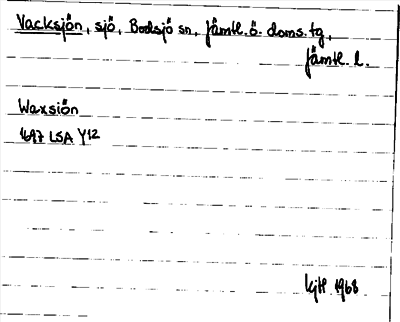 Vacksjön, sjö, Bodsjö sn, Jämtl. ö. doms. tg,
Jämtl. l.
Waxsiön
1697 LSA Y12
1968